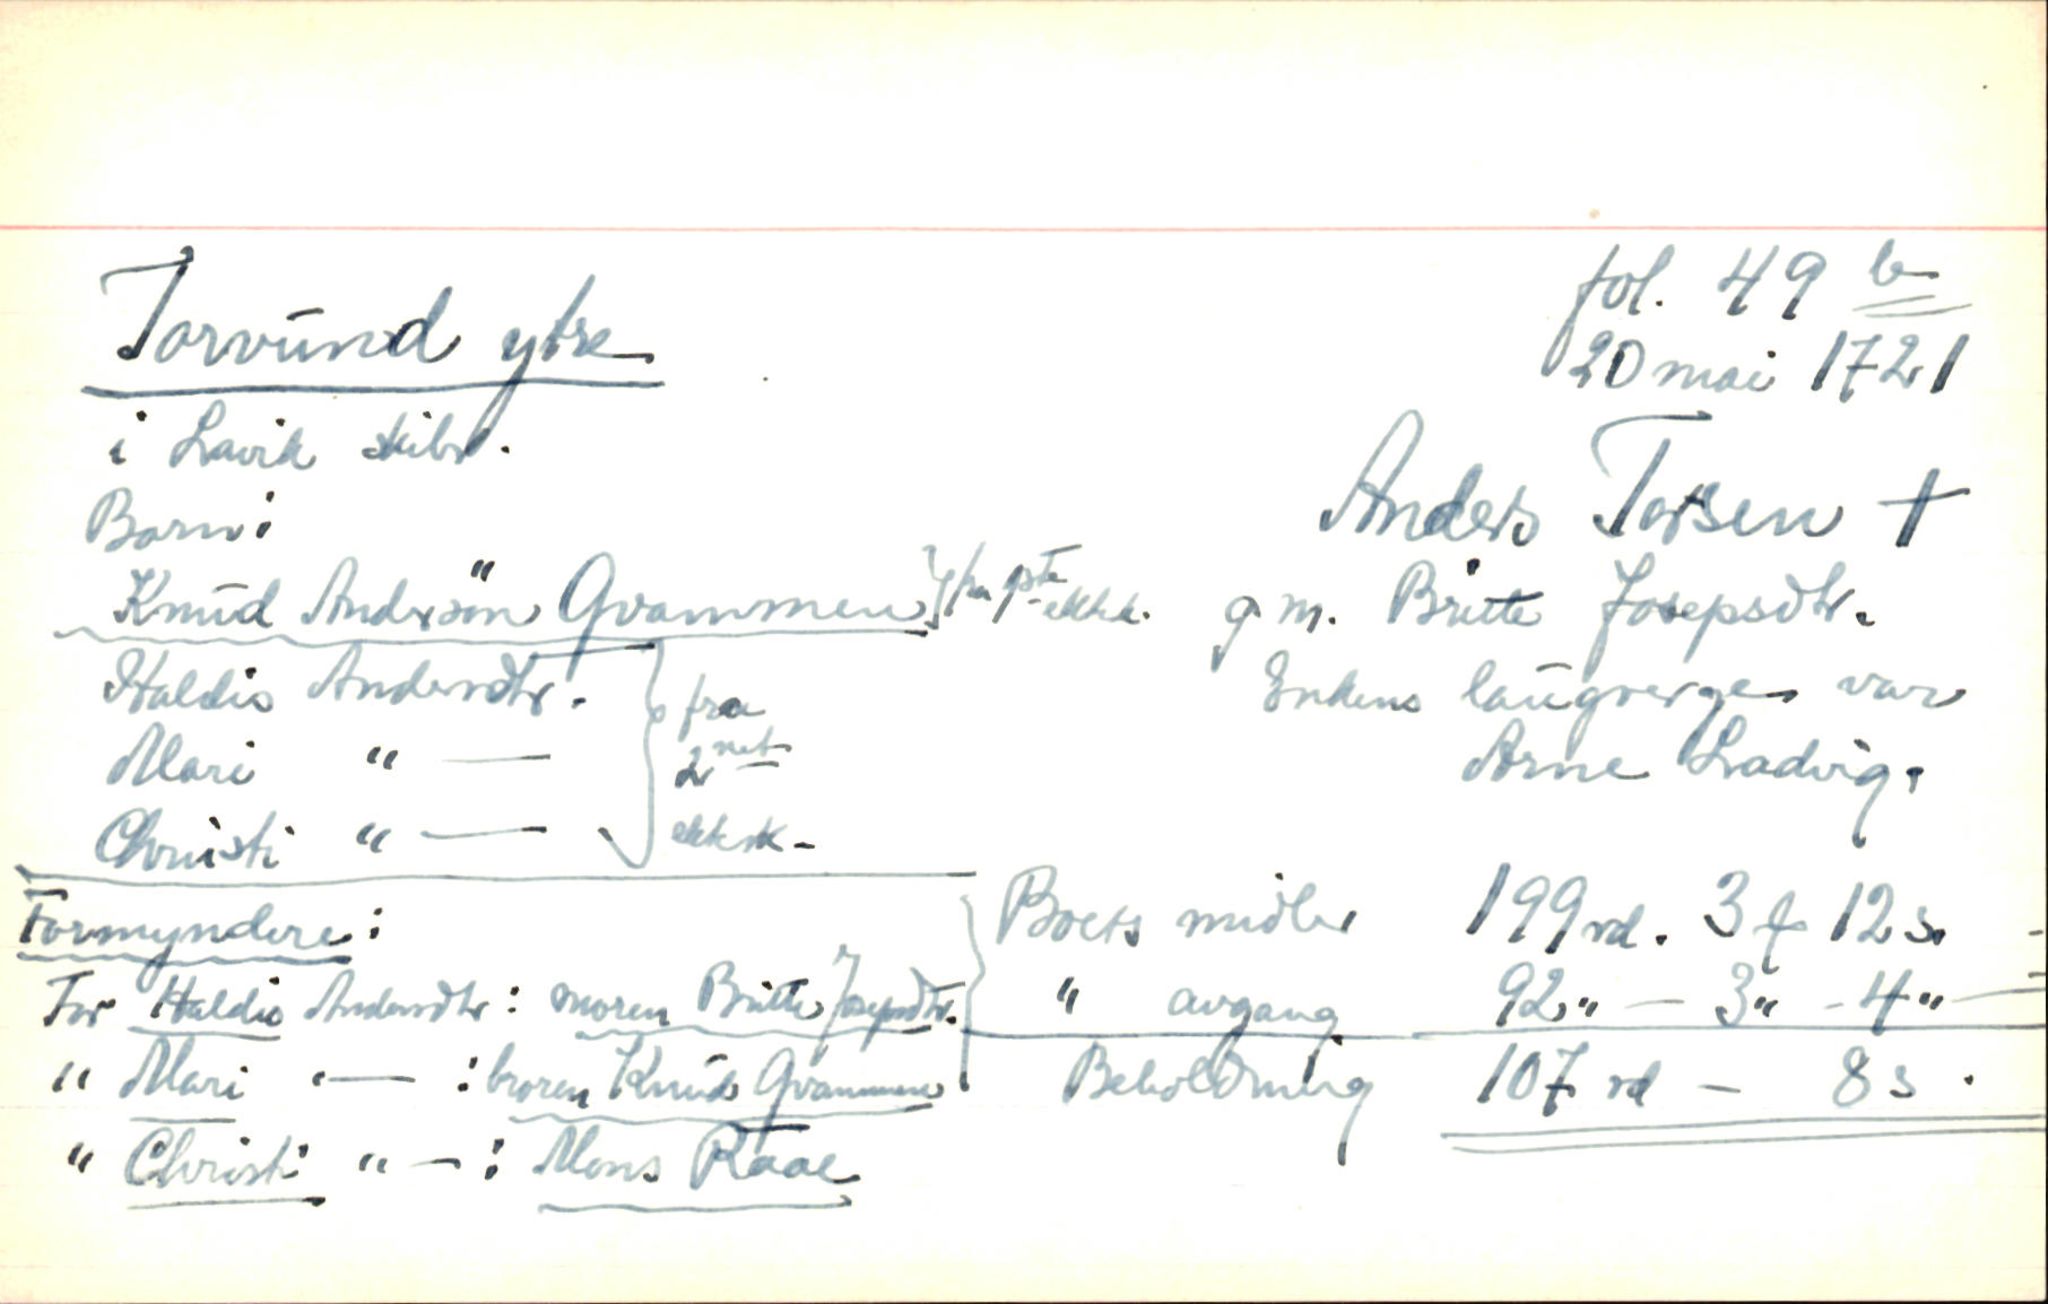 Torvund ytre
fol. 49 b
20 mai 1721
i Lavik skibr.
Anders Torsen †
Barn:
Knud Anderson Qvammen } fra 1ste ektsk.
g. m. Britte Josepsdtr.
Haldis Andersdtr.
Enkens laugverge var
Mari " —
fra 2net
Arne Ladvig.
Christi " —
ektsk.
Formyndere:
Boets midler 199 rd. 3 f 12 s.
For Haldis Andersdtr: moren Britte Josepsdtr.
" avgang 92 " — 3 " - 4 "
" Mari " — : broren Knud Qvammen
Beholdning 107 rd — 8 s.
" Christi " — : Mons Raae